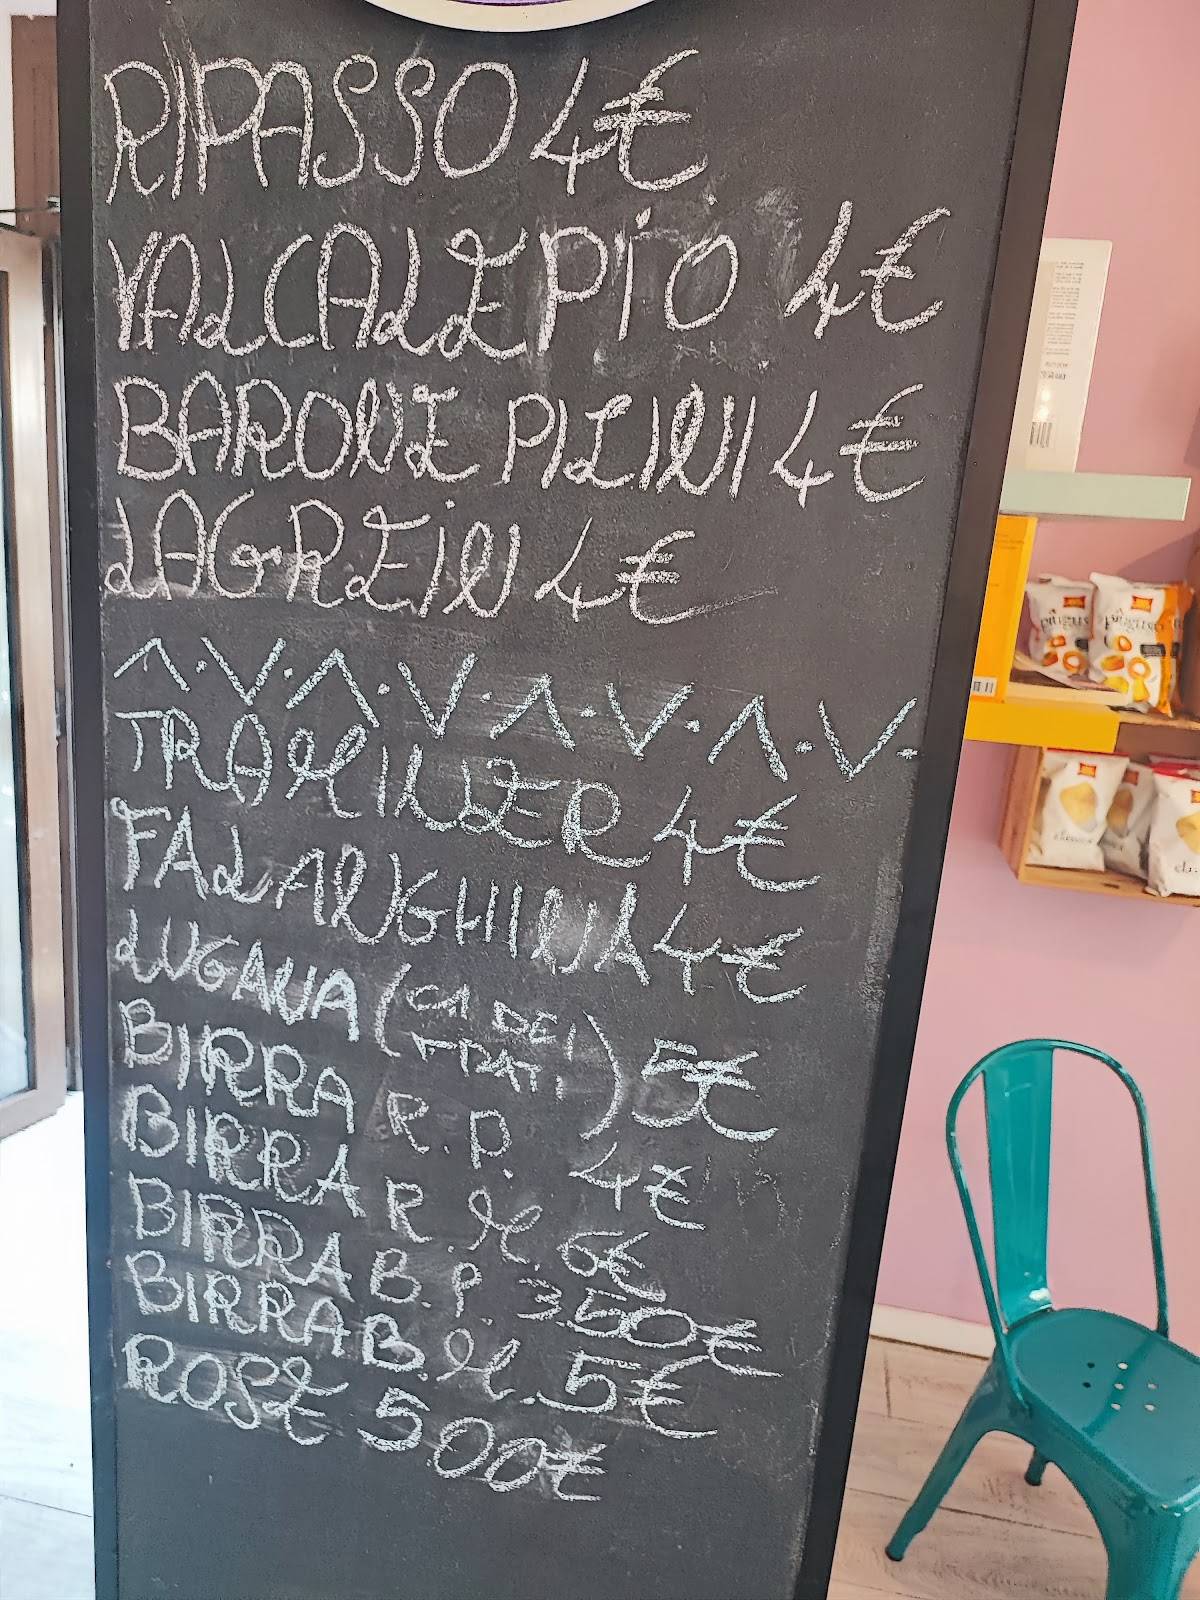 RIPASSO 4€
VALCALEPIO 4€
BARONE PIZINI 4€
LAGREIN 4€
TRAMINER 4€
FALANGHINA 4€
LUGANA (CA' DEI FRATI) 5€
BIRRA R.P. 4€
BIRRA R.M. 6€
BIRRA B.P. 3.50€
BIRRA B.M. 5€
ROSÉ 500€